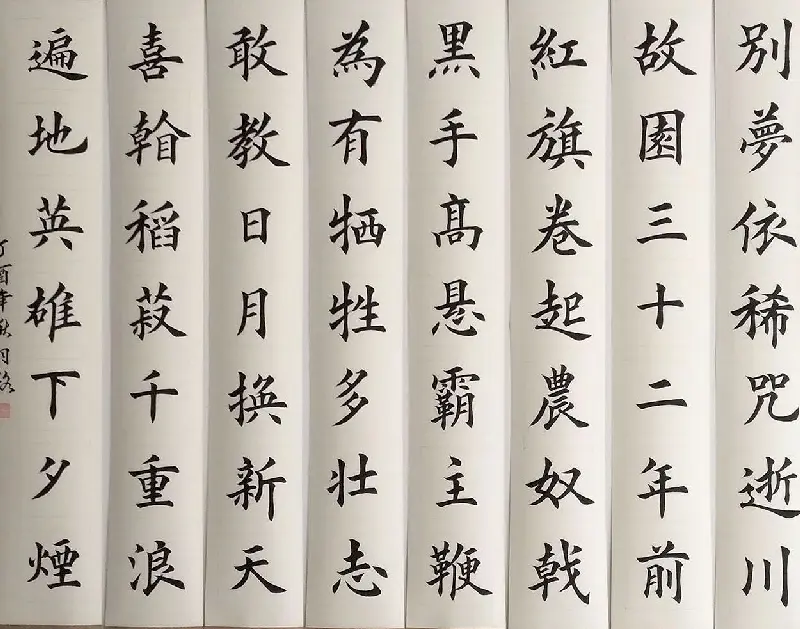 別夢依稀咒逝川
故園三十二年前
紅旗卷起農奴戟
黑手高悬霸主鞭
為有牺牲多壮志
敢教日月换新天
喜㫻稻菽千重浪
遍地英雄下夕煙
丁酉年秋月